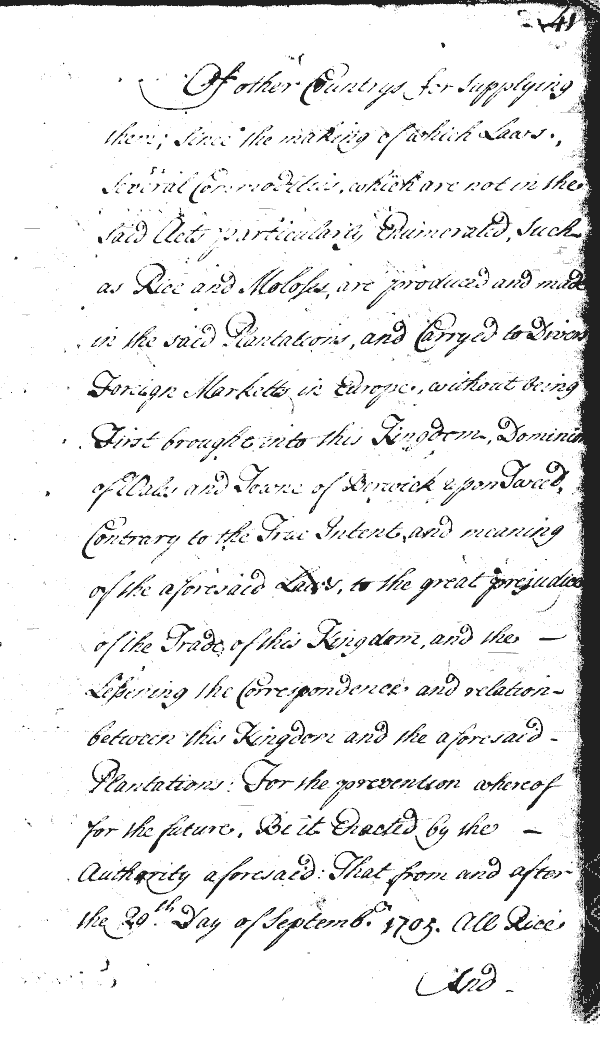 41
Of other Countrys for supplying
them; since the making of which Laws,
several Commodities, which are not in the
said Acts particularly Enumerated, such
as Rice and Moloses, are produced and made
in the said Plantations, and Carryed to Divers
Foreign Marketts in Europe, without being
First brought into this Kingdom, Dominion
of Wales and Towne of Berwick upon Tweed,
Contrary to the True Intent and meaning
of the aforesaid Laws, to the great prejudice
of the Trade of this Kingdom, and the —
Lessening the Correspondence and relation -
between this Kingdom and the aforesaid -
Plantations: For the prevention whereof
for the future, Be it Enacted by the —
Authority aforesaid: That from and after
the 29.th Day of Septemb.r 1705. All Rice
And -